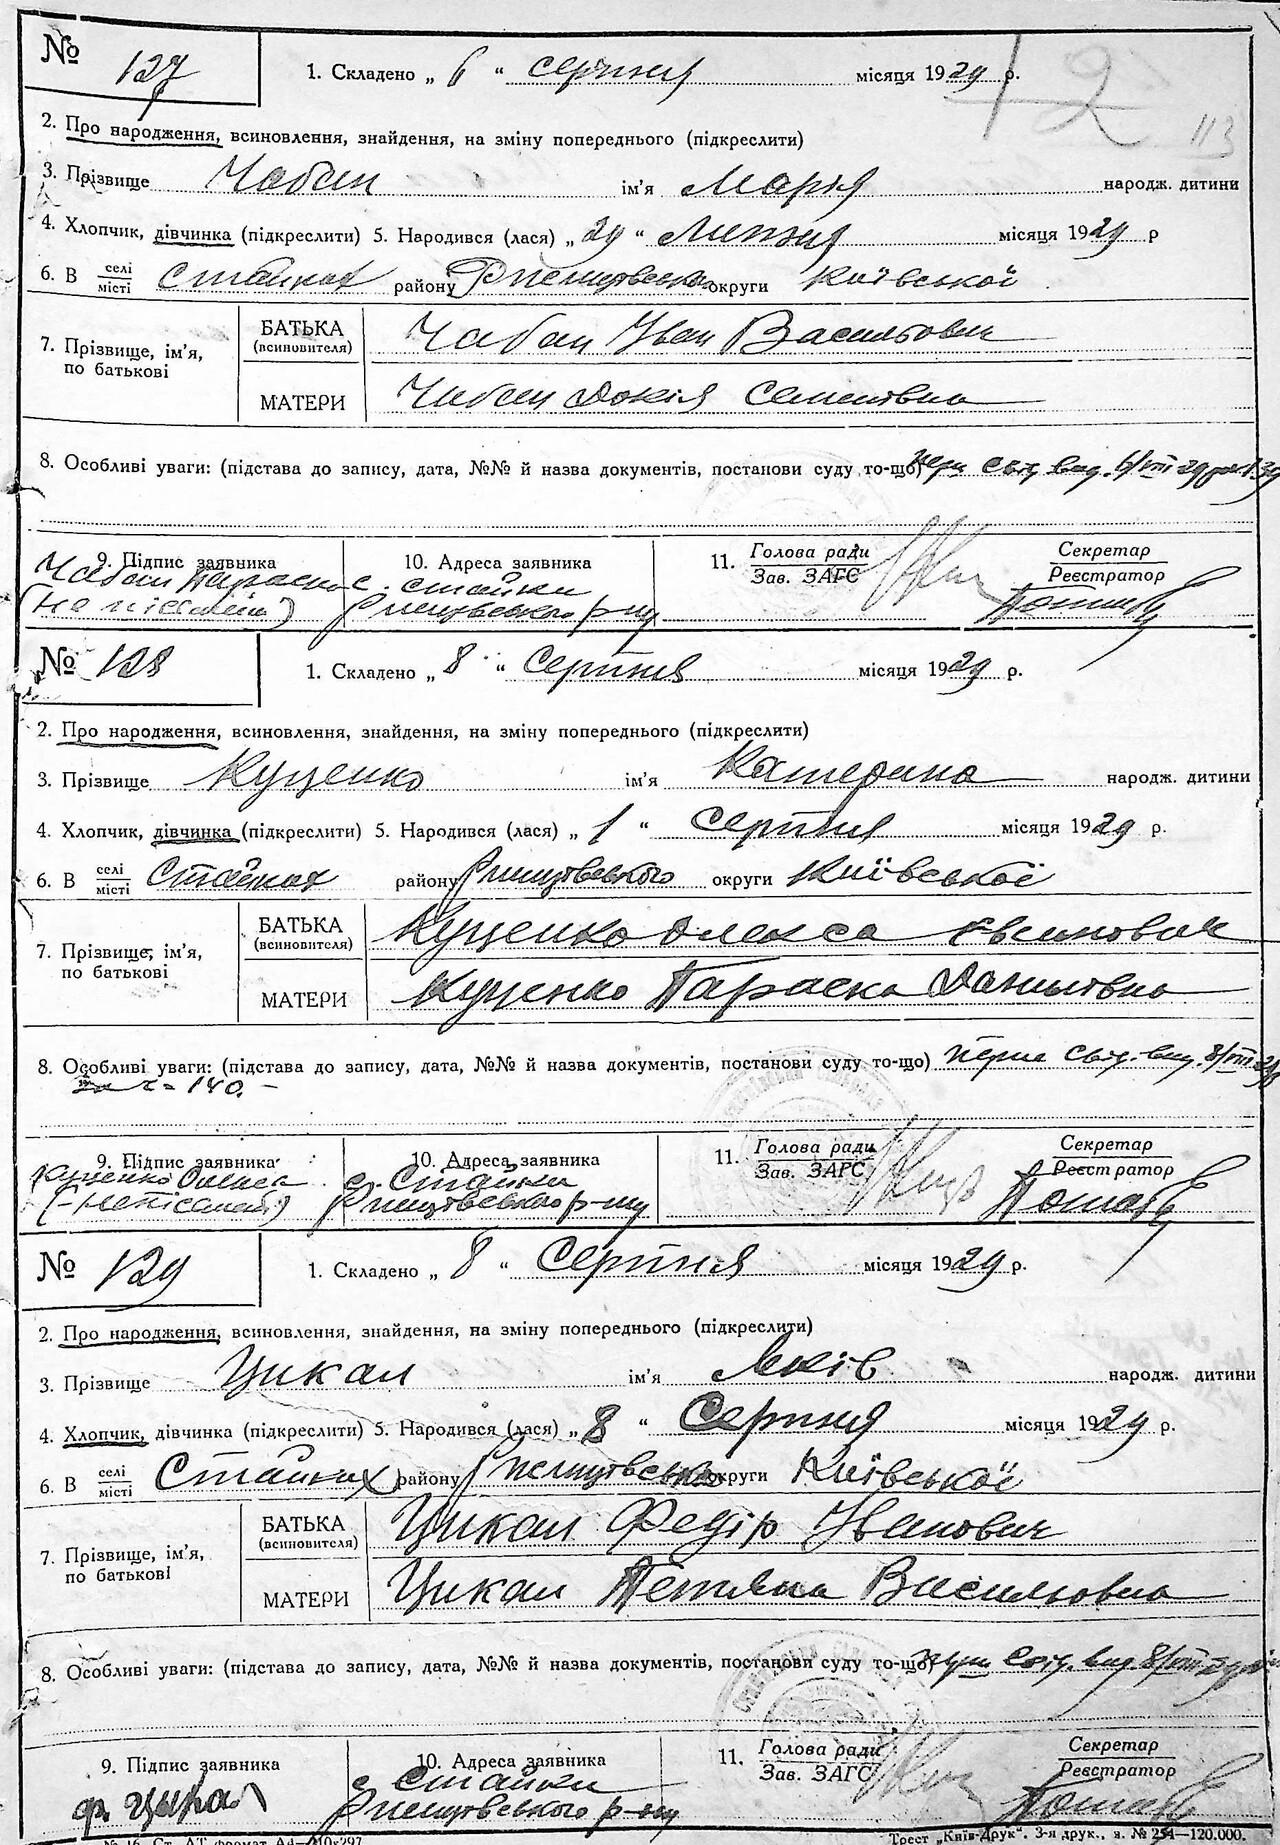 № 127 1. Складено „ 6 “ серпня місяця 1929 р.
113
2. Про народження, всиновлення, знайдення, на зміну попереднього (підкреслити)
3. Прізвище Чабан ім'я Марія народж. дитини
4. Хлопчик, дівчинка (підкреслити) 5. Народився (лася) „ 29 “ Липня місяця 1929 р
6. В селі місті Стайках району Ржищівсько округи Київської
7. Прізвище, ім'я, по батькові
БАТЬКА (всиновителя) Чабан Іван Васильович
МАТЕРИ Чабан Докія Семенівна
8. Особливі уваги: (підстава до запису, дата, №№ й назва документів, постанови суду то-що) перш світ. вид. 6/VIII 29
9. Підпис заявника 10. Адреса заявника 11. Голова ради Секретар
Зав. ЗАГС Реєстратор
Чабан с. Стайки
Ржищівського р-ну
№ 128 1. Складено „ 8 “ Серпня місяця 1929 р.
2. Про народження, всиновлення, знайдення, на зміну попереднього (підкреслити)
3. Прізвище Куценко ім'я Катерина народж. дитини
4. Хлопчик, дівчинка (підкреслити) 5. Народився (лася) „ 1 “ серпня місяця 1929 р.
6. В селі місті Стайках району Ржищівського округи Київської
7. Прізвище, ім'я, по батькові
БАТЬКА (всиновителя) Куценко Олекса
МАТЕРИ Куценко Параска Данилівна
8. Особливі уваги: (підстава до запису, дата, №№ й назва документів, постанови суду то-що) перше світ. вид. 8/VIII 29
140.-
9. Підпис заявника 10. Адреса заявника 11. Голова ради Секретар
Зав. ЗАГС Реєстратор
Куценко Олекса с. Стайки
Ржищівського р-ну
№ 129 1. Складено „ 8 “ Серпня місяця 1929 р.
2. Про народження, всиновлення, знайдення, на зміну попереднього (підкреслити)
3. Прізвище Цикал ім'я Яків народж. дитини
4. Хлопчик, дівчинка (підкреслити) 5. Народився (лася) „ 8 “ Серпня місяця 1929 р.
6. В селі місті Стайках району Ржищівсько округи Київської
7. Прізвище, ім'я, по батькові
БАТЬКА (всиновителя) Цикал Федір Іванович
МАТЕРИ Цикал Тетяна Васильовна
8. Особливі уваги: (підстава до запису, дата, №№ й назва документів, постанови суду то-що) перш світ. вид. 8/VIII
9. Підпис заявника 10. Адреса заявника 11. Голова ради Секретар
Зав. ЗАГС Реєстратор
с. Стайки
Ржищівського р-ну
Трест „Київ-Друк“. 3-я друк., з. № 254—120.000.